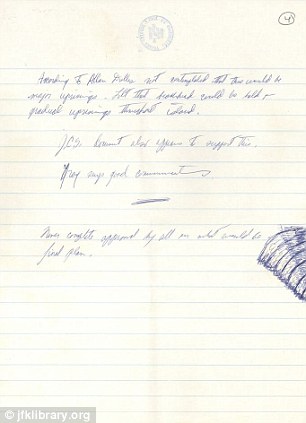 4
According to Allan Dulles not contemplated that there would be
major uprisings. Felt that beachhead could be held &
gradual uprisings throughout island.
J.C.S. also appears to support this.
says good
Never complete approval by all on what would be
final plan.
© jfklibrary.org